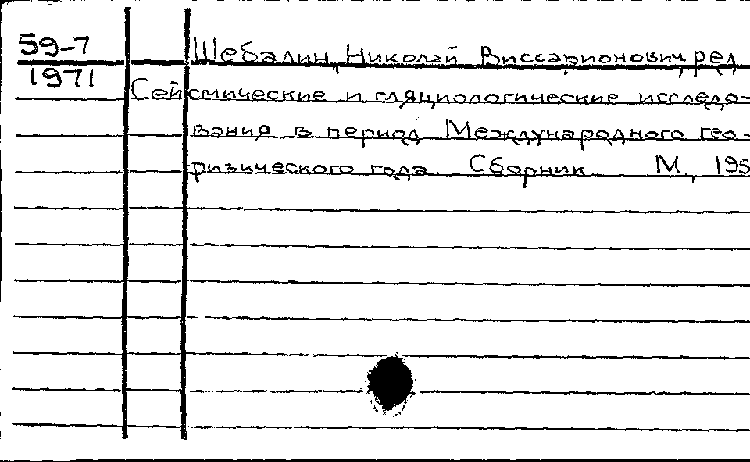 59-7
1971
Шебалин, Николай Виссарионович, ред.
Сейсмические и гляциологические исследо-
вания в период Международного гео-
физического года. Сборник. М., 195